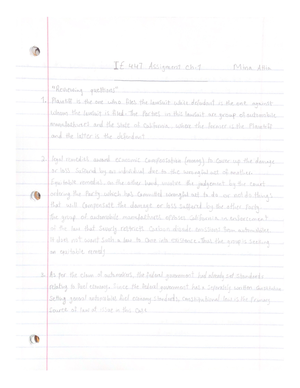 IE 447 Assignment Ch.1
"Reviewing questions"
1. Plaintiff is the one who files the lawsuit while defendant is the one against
whom the lawsuit is filed. The parties in this lawsuit are group of automobile
manufacturers and the state of California, where the former is the Plaintiff
and the latter is the defendant
2. legal remedies award economic compensation (money) to cover up the damage
or loss suffered by an individual due to the wrongful act of another.
Equitable remedies, on the other hand, involve the judgement by the court
ordering the party which has committed wrongful act to do or not do things
that will compensate the damage or loss suffered by the other party.
The group of automobile manufacturers
of the law that
it does not want such a law to come into existence. Thus the group is seeking
an equitable remedy
3. As per the claim of automakers, the federal government had already set standards
relating to fuel economy. Since the federal government has a
setting general automobile fuel economy standards, constitutional law is the primary
source of law at issue in this case